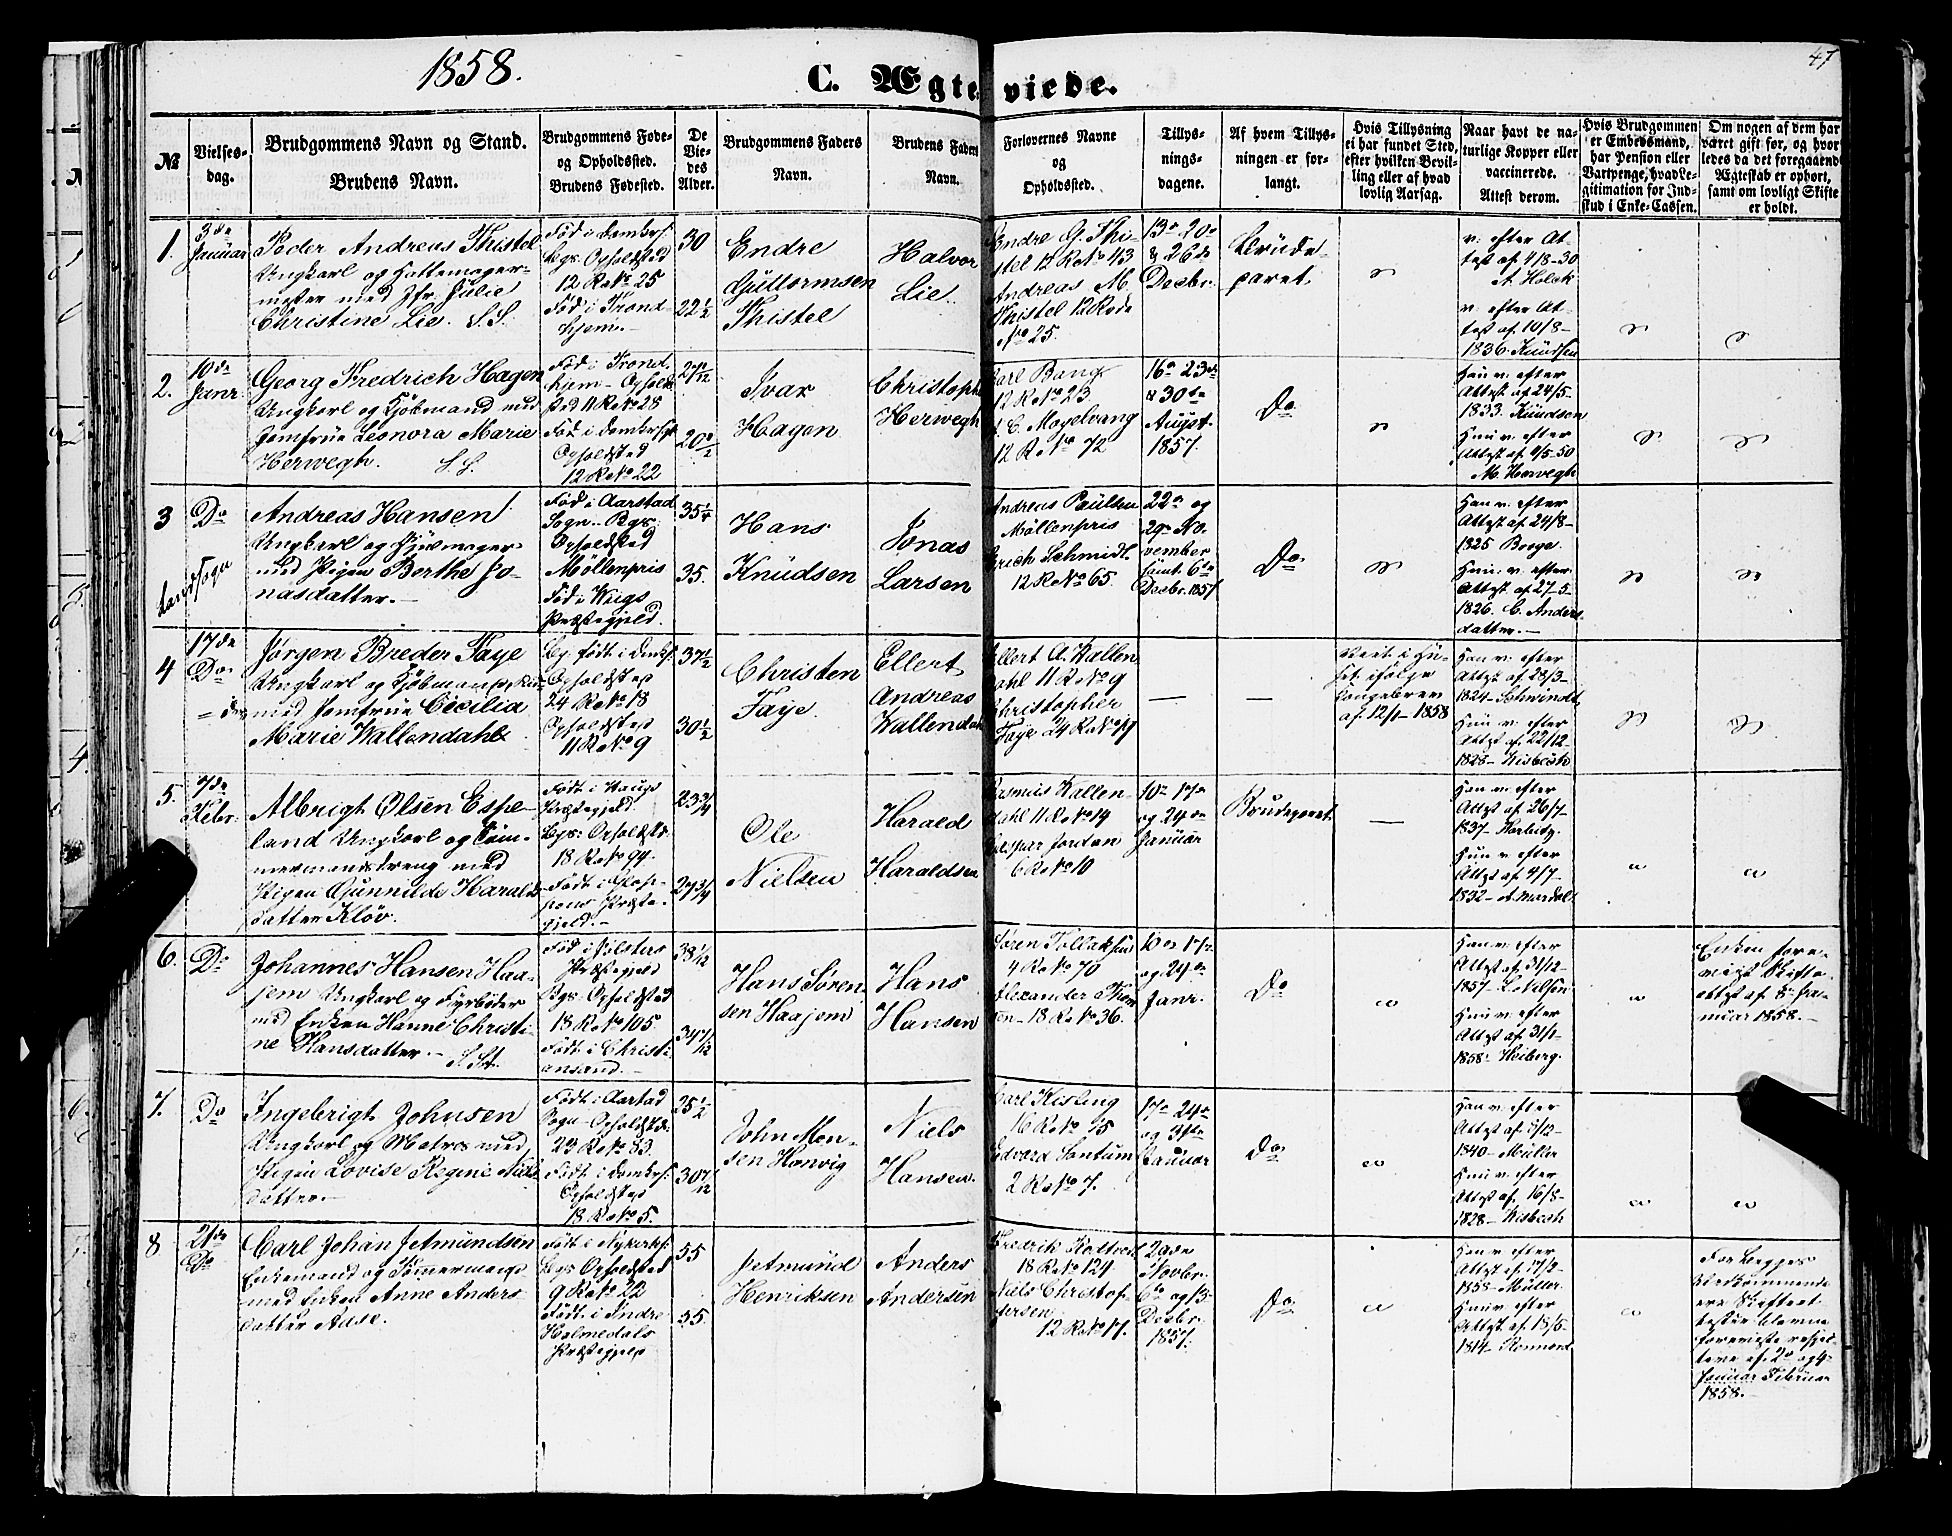 1858.
47
C. Ægteviede.
№
Vielses-
dag.
Brudgommens Navn og Stand.
Brudens Navn.
Brudgommens Føde-
og Opholdssted.
Brudens Fødested.
De
Vie-
des
Alder.
Brudgommens Faders
Navn.
Brudens Faders
Navn.
Forlovernes Navne
og
Opholdssted.
Tillys-
nings-
dagene.
Af hvem Tillys-
ningen er for-
langt.
Hvis Tillysning
ei har fundet Sted,
efter hvilken Bevil-
ling eller af hvad
lovlig Aarsag.
Naar havt de na-
turlige Kopper eller
vaccinerede.
Attest derom.
Hvis Brudgommen
er Embedsmand,
har Pension eller
Vartpenge, hvad Le-
gitimation for Ind-
skud i Enke-Cassen.
Om nogen af dem har
været gift før, og hvor-
ledes da det foregaaende
Ægteskab er ophørt,
samt om lovligt Skifte
er holdt.
1.
3de
Januar
Peder Andreas Thistel
Ungkarl og Hattemager-
mester med Jfr. Julie
Christine Lie. S.S.
Død i Domks.
Bgs. Opholdsted
12 Ro No 25
Fød i Trond-
hjem.
30
22 1/2
Endre
Guttormsen
Thistel
Halvor
Lie.
Endre G. Thi-
stel 12 Ro No 43
Andreas M.
Thistel 12 Rode
No 25.
13de 20de
& 26de
Decbr.
Brude-
paret
v. efter At-
test af 4/8-30
A. Holck
v. efter At-
test af 10/8-
1836. Knudsen
2.
10de
Janr.
Georg Fredrich Hagen
Ungkarl og Kjøbmand med
Jomfrue Leonora Marie
Herwegh. S.S.
Fød i Trond-
hjem - Ophold-
sted 11 Ro No 28
Fød i Domksg.
Opholdsted
12 Ro No 22
Ivar
Hagen
Christoph
Herwegh
Carl Bang
12 Ro No 23
C. Mogelvang
12 Ro No 72
16de 23de
& 30de
August
1857.
Do
Han v. efter
Attest af 24/5-
1833. Knudsen
Hun v. efter
Attest af 9/5-50
M. Herwegh
3
Do
Landsogn
Andreas Hansen
Ungkarl og
med Pigen Berthe Jo-
nasdatter.
Fød i Aarstad
Sogn. Bgs.
Opholdsted
Möllenpris
Fød i Wiigs
Præstegjeld.
35 1/4
35.
Hans
Knudsen
Jonas
Larsen
Andreas Paulsen
Möllenpris
Erich Schmidt
12 Ro No 65.
22de og
29de No-
vember
samt 6te
Decbr. 1857
Do
Han v. efter
Attest af 24/8-
1825 Borge.
Hun v. efter
Attest af 27-5-
1826. C. Anders-
datter.
4
17de
Do
Jørgen Breder Faye
Ungkarl og Kjøbmand
med Jomfrue Cecilia
Marie Wallendahl
Bg. født i Domks.
Opholdsted
24 Ro No 18
Opholdsted
11 Ro No 9
37 1/2
30 1/2
Christen
Faye.
Ellert
Andreas
Wallendahl
Ellert A. Wallen-
dahl 11 Ro No 9
Christopher
Faye 24 Ro No 19
Viet i Hu-
set ifølge
Kongebrev
af 12/1-1858
Han v. efter
Attest af 28/3-
1824- Schwindt
Hun v. efter
Attest af 22/12-
1828- Wisbech
5.
7de
Febr.
Albrigt Olsen Espe-
land Ungkarl og Töm-
mermandsdreng med
Pigen Gunnilde Haralds-
datter Kløv.
Født i Haugs
Præstegjeld
Bgs. Opholdsted
18 Ro No 99.
Præste-
gjeld.
23 3/4
27 3/4
Ole
Nielsen
Harald
Haraldsen
Rasmus Wallen-
dahl 11 Ro No 19
Jesper Jordan
6 Ro No 10
10de 17de
og 24de
Januar
Brudeparet.
Han v. efter
Attest af 26/7-
1837- Herberg.
Hun v. efter
Attest af 4/7-
1832- A. Mardal.
6.
Do
Johannes Hansen Haa-
jem Ungkarl og Fyrböder
med Enken Hanne Christi-
ne Hansdatter.
Fød i Jölsters
Præstegjeld
Bgs. Opholdsted
18 Ro No 105.
Født i Christi-
ansand.
38 1/12
34 7/12
Hans Sören-
sen Haajem
Hans
Hansen
Sören Tollaksen
4 Ro No 70
Alexander Thom-
sen- 18 Ro No 36.
10de 17de
og 24de
Janr.
Do
Han v. efter
Attest af 31/12-
1857-
Hun v. efter
Attest af 31/1-
1858- Heiberg.
Enken fore-
viist Skifte-
attest af 8de Ja-
nuar 1858.
7.
Do
Ingebrigt Johnsen
Ungkarl og Matros med
Pigen Lovise Regine Niels-
datter.
Født i Aarstad
Sogn- Opholdsted.
23 Ro No 83.
Født i Domks.
Opholdsted
18 Ro No 5.
25 1/2
30 7/12
John Mon-
sen Honvig
Niels
Hansen.
Carl Kisling
16 Ro No 75
Edvard Santum
2 Ro No 7.
17de 24de
og 31te
Januar
Do
Han v. efter
Attest af 1/12-
1840- Müller
Hun v. efter
Attest af 16/8-
1828- Wisbech
8
21de
Do
Carl Johan Jetmundsen
Enkemand og Tömmermand
med Enken Anne Anders-
datter Aase.
Født i Nykirks.
Bgs. Opholdsted
9 Ro No 22
Født i Indre
Holmedals
Præstegjeld
55
55.
Jetmund
Henriksen
Anders
Andersen
Fredrik Kaltved
18 Ro No 124
Niels Christof-
fersen
12 Ro No 17.
29de
Novbr.
6te og 13de
Decbr.
1857.
Do
Han v. efter
Attest af 17/2-
1858- Müller.
Hun v. efter
Attest af 18/5-
1814- Rennord
For begges
Vedkommende
ere Skifteat-
tester blevne
foreviste respec-
tive af 2de og 4de
Januar Februar
1858.